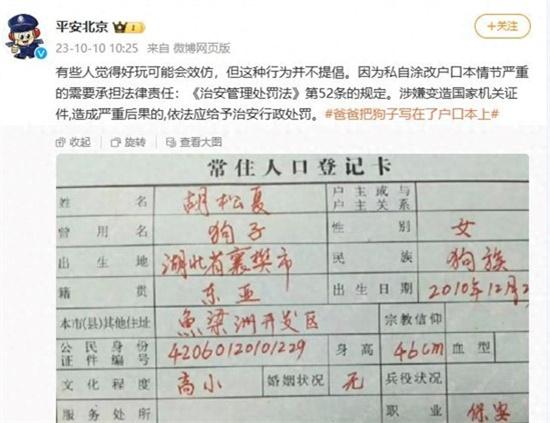 平安北京
+关注
23-10-10 10:25 来自 微博网页版
有些人觉得好玩可能会效仿，但这种行为并不提倡。因为私自涂改户口本情节严重
的需要承担法律责任：《治安管理处罚法》第52条的规定。涉嫌变造国家机关证
件,造成严重后果的,依法应给予治安行政处罚。#爸爸把狗子写在了户口本上#
收起 查看大图
常住人口登记卡
姓名 胡松夏 户主或与户主关系
曾用名 狗子 性别 女
出生地 湖北省襄樊市 民族 狗族
籍贯 东亚 出生日期 2010年12月2
本市(县)其他住址 魚梁洲开发区 宗教信仰
公民身份证件编号 42060120101229 身高 46cm 血型
文化程度 高小 婚姻状况 无 兵役状况
服务处所 职业 保安